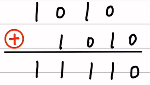 1 0 1 0
⊕ 1 0 1 0
1 1 1 1 0